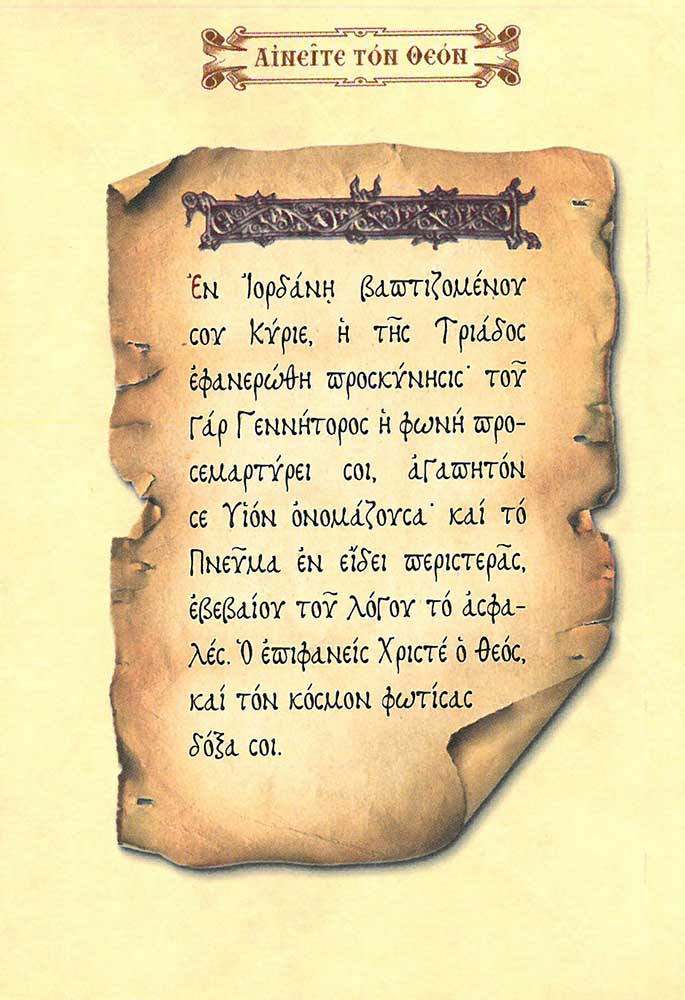 Αἰνεῖτε τόν Θεόν
Ἐν Ἰορδάνῃ βαπτιζομένου
σου Κύριε, ἡ τῆς Τριάδος
ἐφανερώθη προσκύνησις· τοῦ
γάρ Γεννήτορος ἡ φωνή προ-
σεμαρτύρει σοι, ἀγαπητόν
σε Υἱόν ὀνομάζουσα· καί τό
Πνεῦμα ἐν εἴδει περιστερᾶς,
ἐβεβαίου τοῦ λόγου τό ἀσφα-
λές. Ὁ ἐπιφανείς Χριστέ ὁ θεός,
καί τόν κόσμον φωτίσας
δόξα σοι.